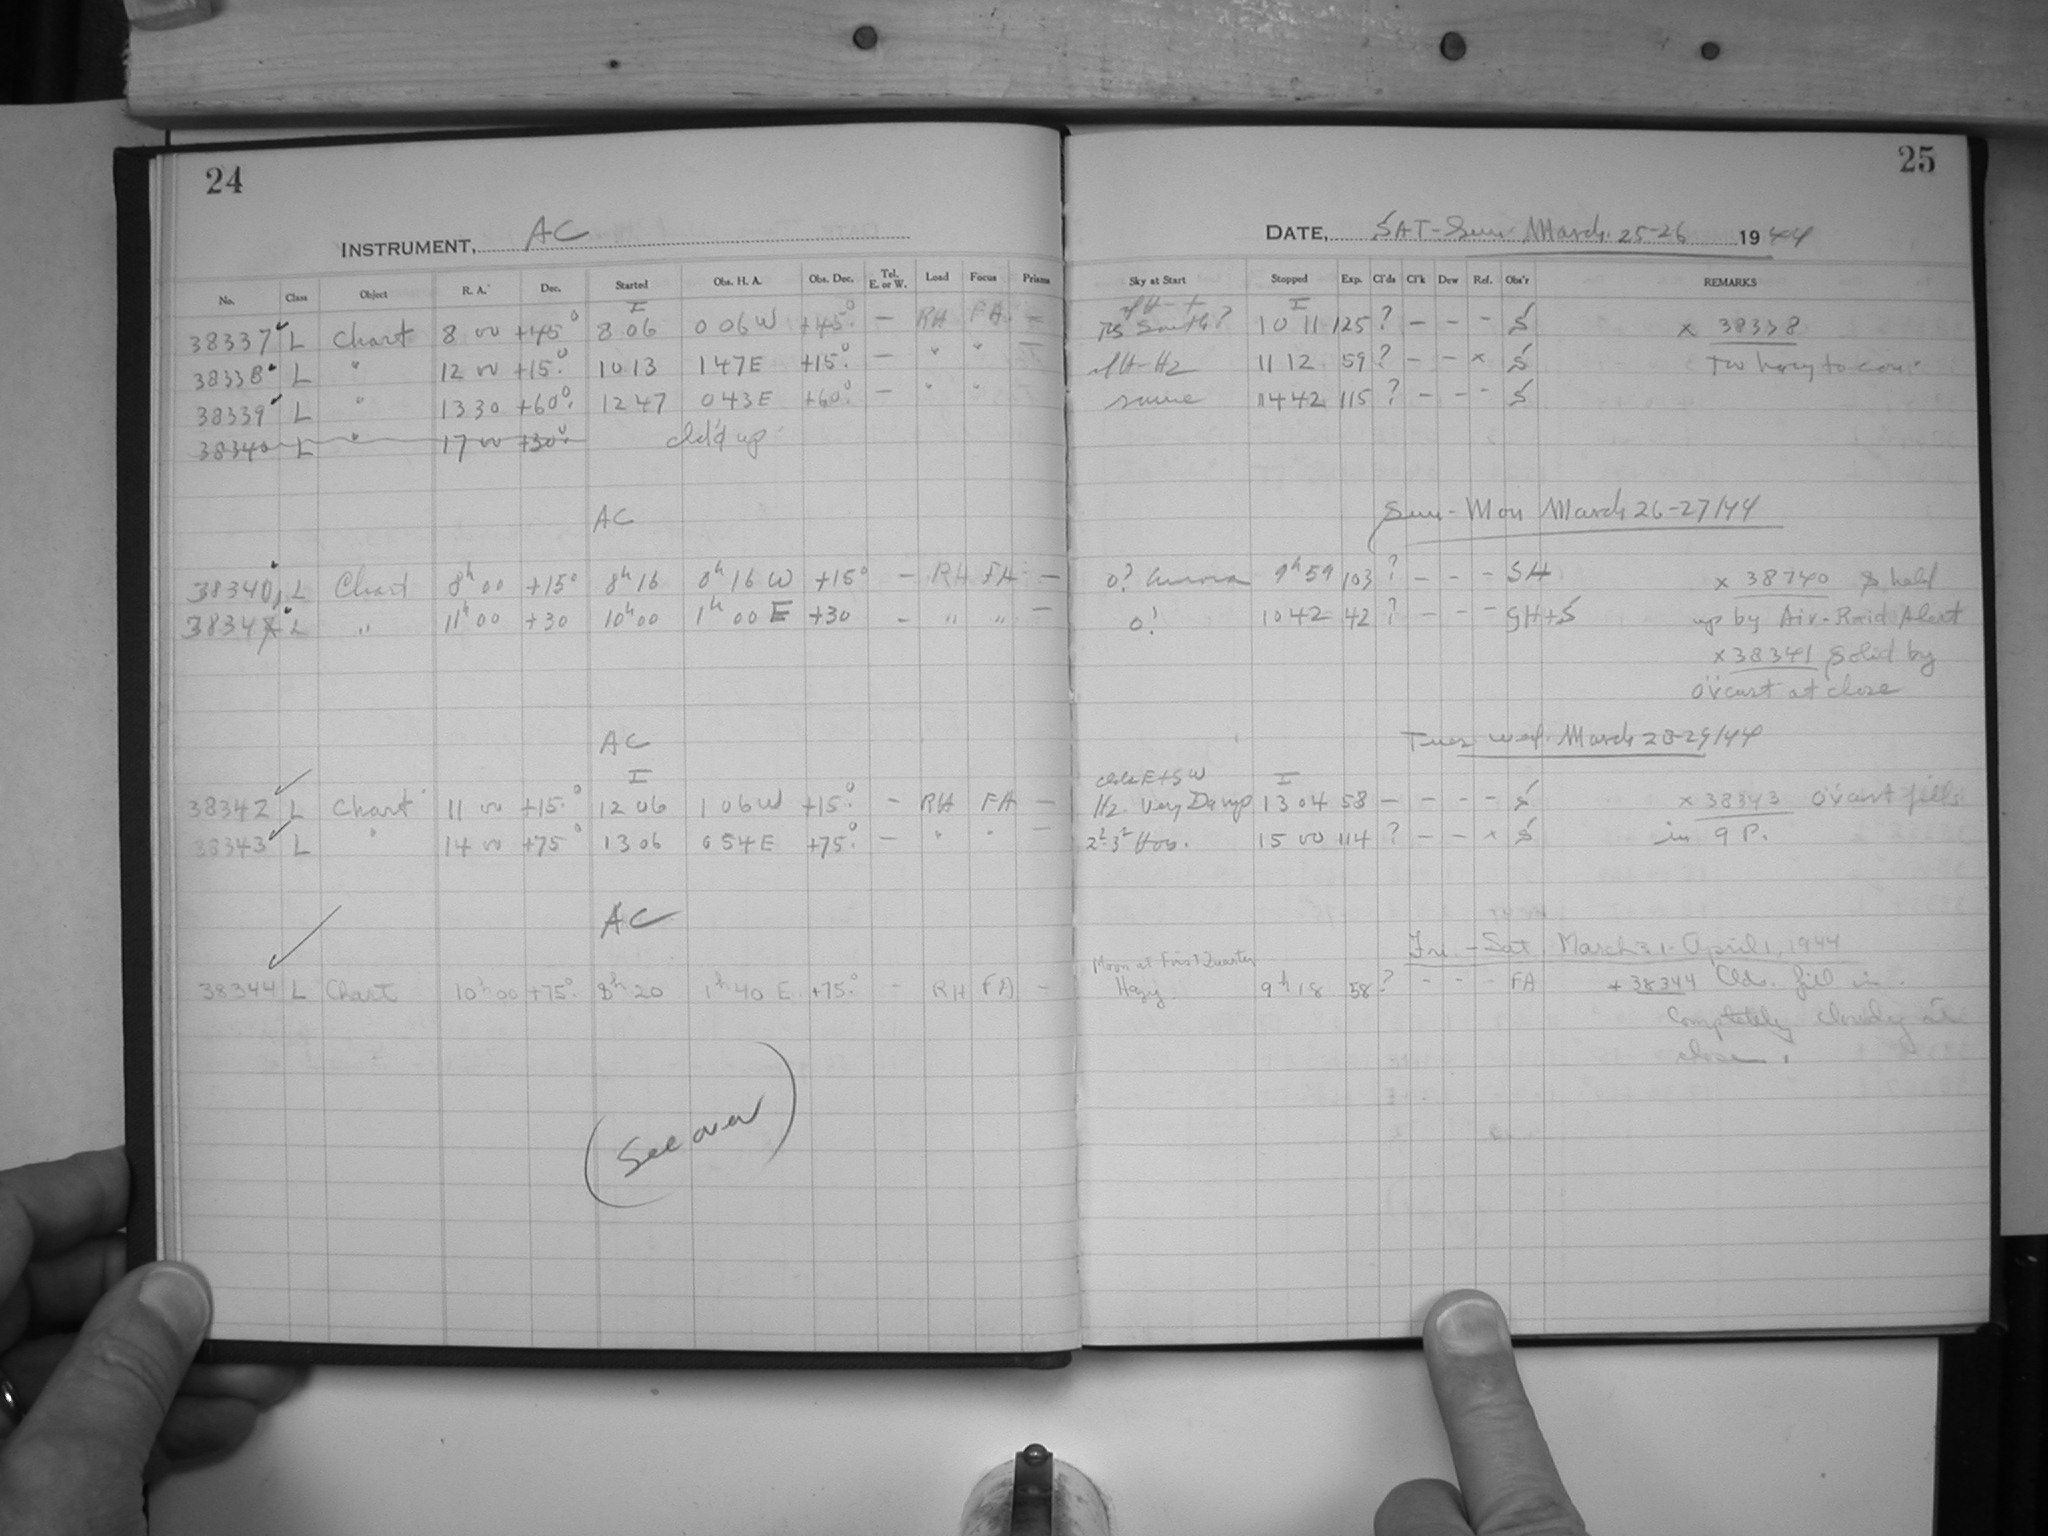 24
INSTRUMENT, AC
No. Class Object R. A. Dec. Started Obs. H. A. Obs. Dec. Tel. E. or W. Load Focus Prisms
I
38337 L Chart 8 00 +45° 8 06 0 06 W +45° — RH FA —
38338 L " 12 00 +15° 10 13 1 47 E +15° — " " —
38339 L " 13 30 +60° 12 47 0 43 E +60° — " "
38340 L " 17 00 +30° cld'd up
AC
38340 L Chart 8h 00 +15° 8h 16 0h 16 W +15° — RH FA —
3834 L " 11h 00 +30 10h 00 1h 00 E +30 — " " —
AC
I
38342 L Chart 11 00 +15° 12 06 1 06 W +15° — RH FA —
38343 L " 14 00 +75° 13 06 0 54 E +75° — " " —
AC
38344 L Chart 10h 00 +75° 8h 20 1h 40 E +75° — RH FA —
(See over)
25
DATE, SAT-Sun. March 25-26 1944
Sky at Start Stopped Exp. Cl'ds Cl'k Dew Ref. Obs'r REMARKS
I
South? 10 11 125 ? — — — S x 38338
H-Hz 11 12 59 ? — — x S Too hazy to
same 14 42 115 ? — — — S
Sun-Mon March 26-27/44
0? Aurora 9h 59 103 ? — — — SH x 38740 S held
0! 10 42 42 ? — — — SH+S up by Air-Raid Alert
x 38341 Solid by
ov'cast at close
Tues Wed. March 28-29/44
clds E+SW I
Hz. Very Damp 13 04 58 — — — — S x 38343 ov'cast fills
2²-3² 15 00 114 ? — — x S in 9 P.
Fri. - Sat. March 31-April 1, 1944
Moon at First Quarter
Hazy. 9h 18 58 ? — — — FA + 38344 Clds. fill in.
Completely cloudy at
close.